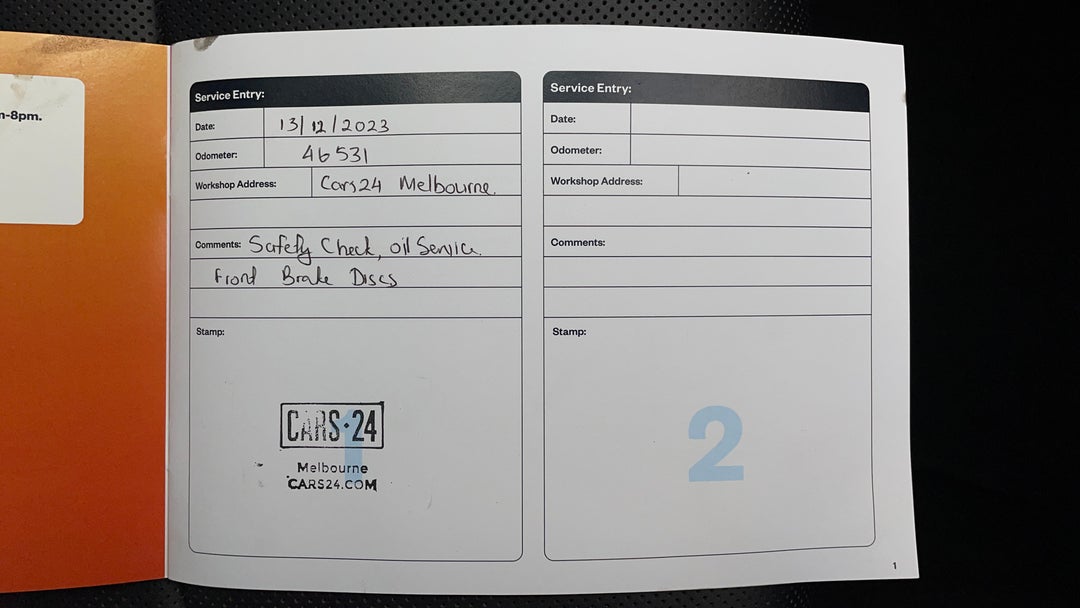 n-8pm.
Service Entry:
Date: 13/12/2023
Odometer: 46531
Workshop Address: Cars24 Melbourne
Comments: Safety Check, oil Service
Front Brake Discs
Stamp:
1
CARS·24
Melbourne
CARS24.COM
Service Entry:
Date:
Odometer:
Workshop Address:
Comments:
Stamp:
2
1